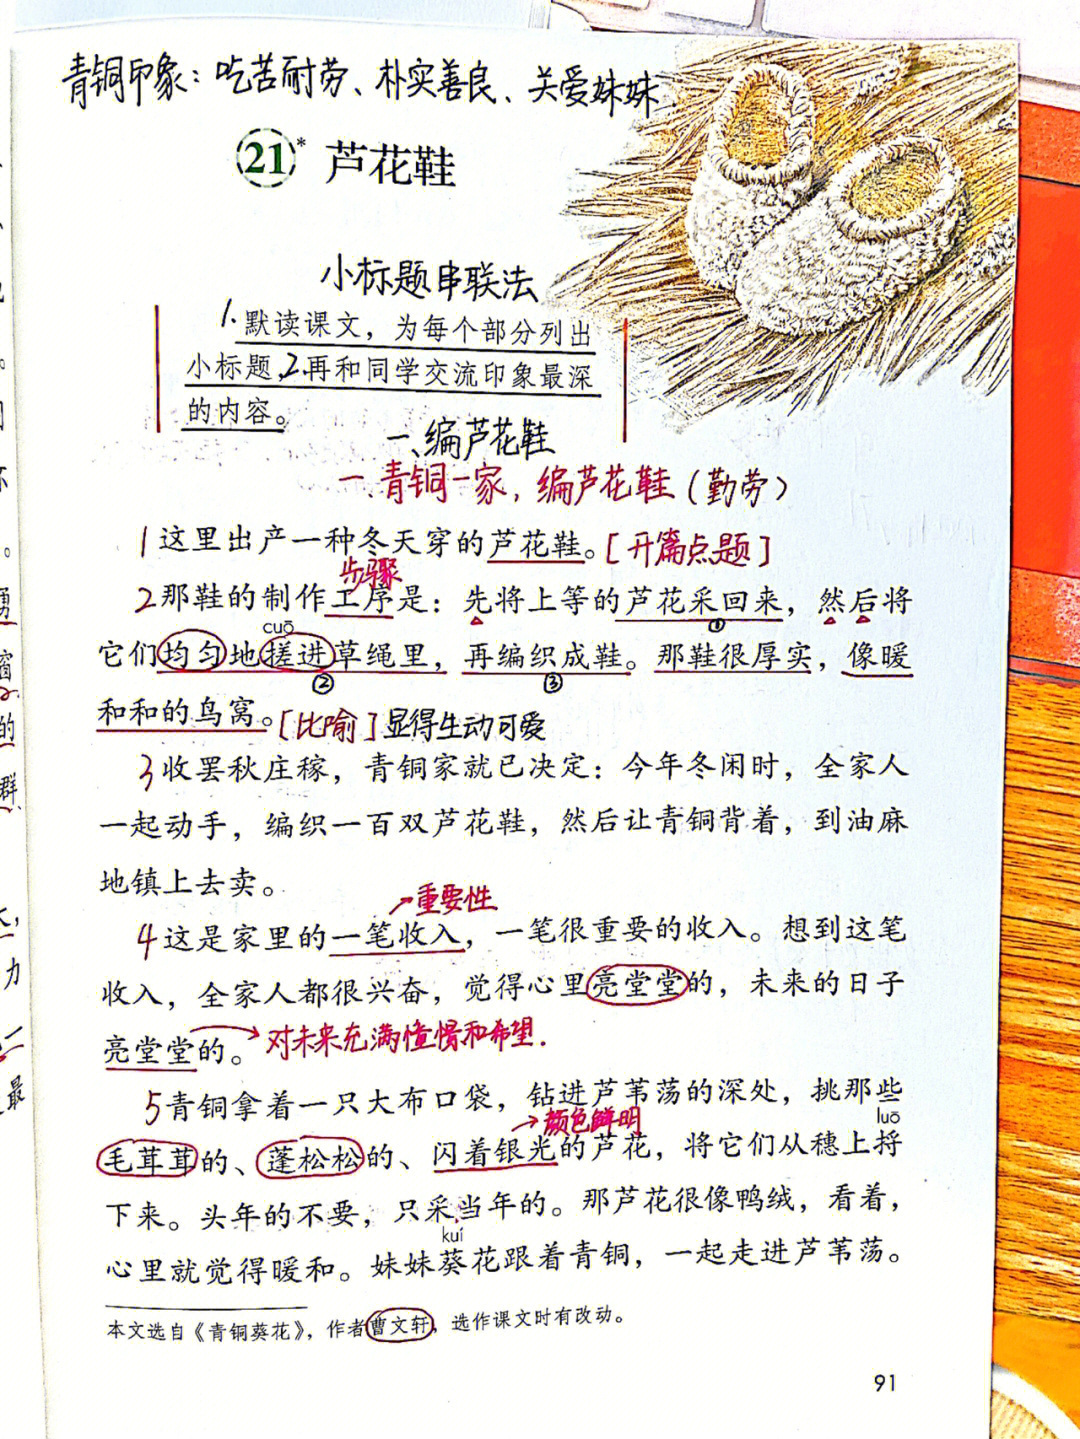 青铜印象：吃苦耐劳、朴实善良、关爱妹妹.
21* 芦花鞋
小标题串联法
1.默读课文，为每个部分列出
小标题,2.再和同学交流印象最深
的内容。
一、编芦花鞋
一.青铜一家，编芦花鞋（勤劳）
1这里出产一种冬天穿的芦花鞋。[开篇点题]
步骤
2那鞋的制作工序是：先将上等的芦花采回来，然后将
①
cuō
它们均匀地搓进草绳里，再编织成鞋。那鞋很厚实，像暖
② ③
和和的鸟窝。[比喻]显得生动可爱
3收罢秋庄稼，青铜家就已决定：今年冬闲时，全家人
一起动手，编织一百双芦花鞋，然后让青铜背着，到油麻
地镇上去卖。
→重要性
4这是家里的一笔收入，一笔很重要的收入。想到这笔
收入，全家人都很兴奋，觉得心里亮堂堂的，未来的日子
亮堂堂的。→对未来充满憧憬和希望.
5青铜拿着一只大布口袋，钻进芦苇荡的深处，挑那些
→颜色鲜明
luō
毛茸茸的、蓬松松的、闪着银光的芦花，将它们从穗上捋
下来。头年的不要，只采当年的。那芦花很像鸭绒，看着，
kuí
心里就觉得暖和。妹妹葵花跟着青铜，一起走进芦苇荡。
本文选自《青铜葵花》，作者曹文轩，选作课文时有改动。
91